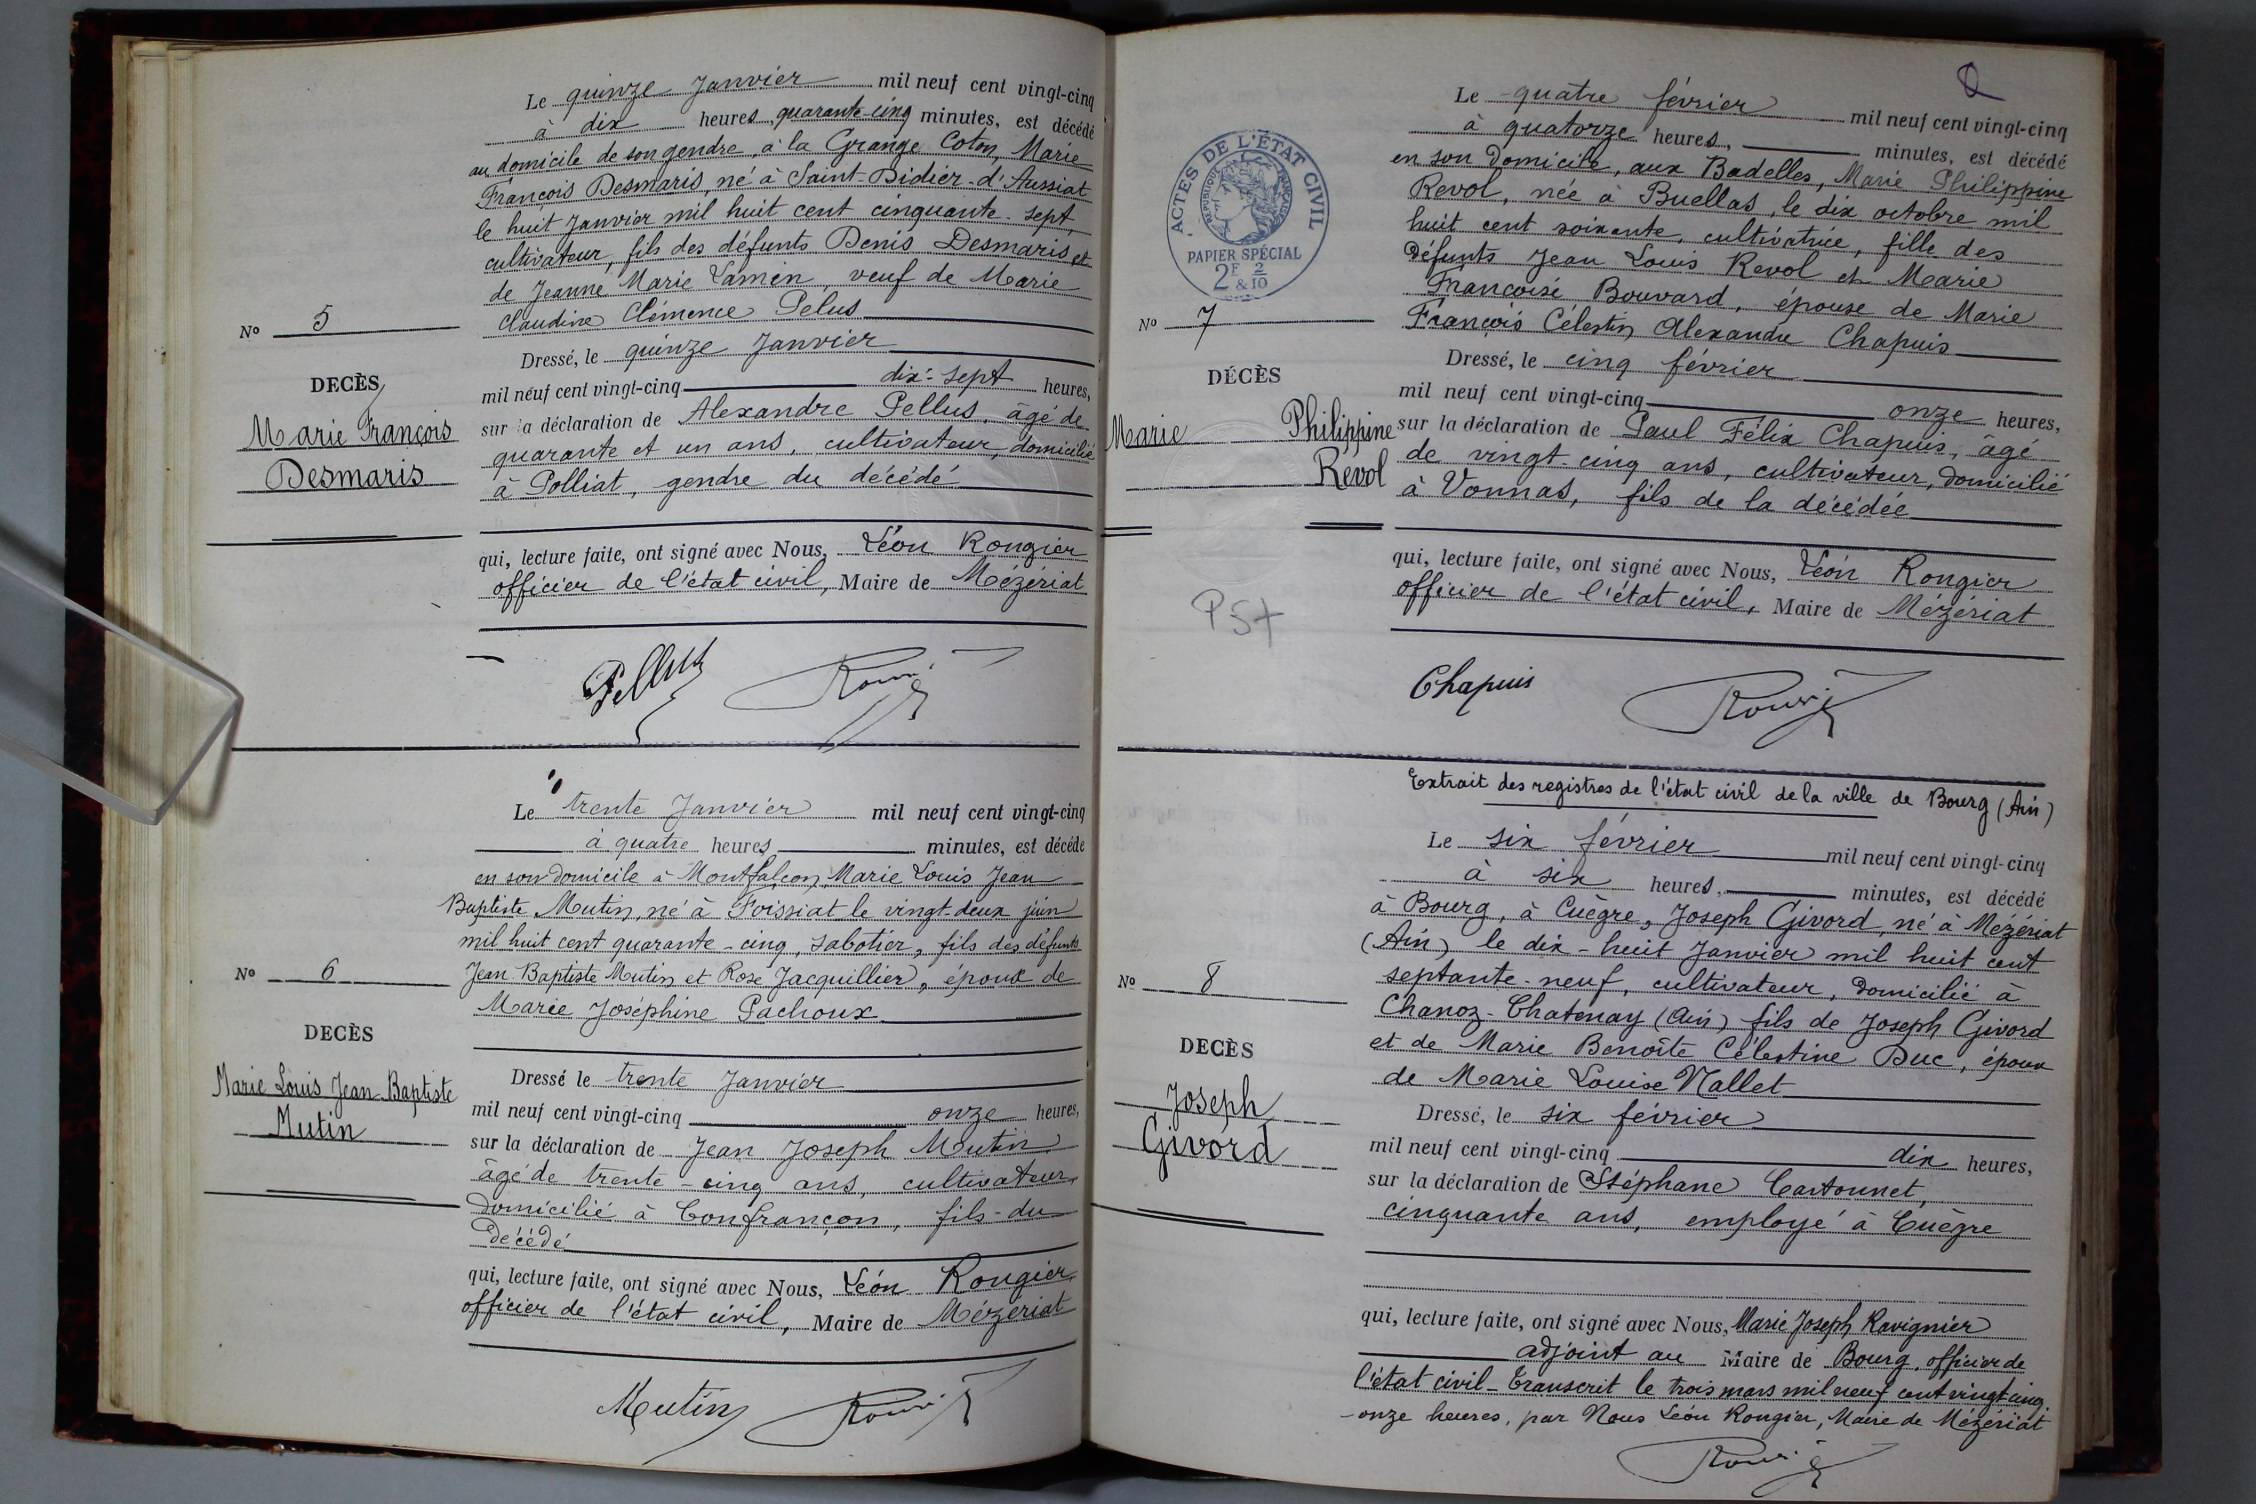 Le quinze Janvier mil neuf cent vingt-cinq
à dix heures, quarante-cinq minutes, est décédé
au domicile de son gendre, à la Grange Coton, Marie
François Desmaris, né à Saint-Didier-d'Aussiat
le huit Janvier mil huit cent cinquante-sept,
cultivateur, fils des défunts Denis Desmaris et
de Jeanne Marie Lamen, veuf de Marie
Claudine Clémence Pelus
No 5
DECÈS
Marie François
Desmaris
Dressé, le quinze Janvier
mil neuf cent vingt-cinq dix-sept heures,
sur la déclaration de Alexandre Pellus, âgé de
quarante et un ans, cultivateur, domicilié
à Polliat, gendre du décédé
qui, lecture faite, ont signé avec Nous, Léon Rougier
officier de l'état civil, Maire de Mézériat
Pellus
Le trente Janvier mil neuf cent vingt-cinq
à quatre heures minutes, est décédé
en son domicile à Montfalcon, Marie Louis Jean
Baptiste Mutin, né à Foissiat le vingt-deux juin
mil huit cent quarante-cinq, sabotier, fils des défunts
Jean Baptiste Mutin et Rose Jacquillier, époux de
Marie Joséphine Pachoux
No 6
DECÈS
Marie Louis Jean Baptiste
Mutin
Dressé le trente Janvier
mil neuf cent vingt-cinq onze heures,
sur la déclaration de Jean Joseph Mutin
âgé de trente-cinq ans, cultivateur,
domicilié à Confrançon, fils du
décédé
qui, lecture faite, ont signé avec Nous, Léon Rougier,
officier de l'état civil, Maire de Mézériat
Mutin
ACTES DE L'ÉTAT CIVIL
RÉPUBLIQUE FRANÇAISE
PAPIER SPÉCIAL
2F 2
& 10
Le quatre février mil neuf cent vingt-cinq
à quatorze heures, minutes, est décédé
en son domicile, aux Badelles, Marie Philippine
Revol, née à Buellas, le dix octobre mil
huit cent soixante, cultivatrice, fille des
défunts Jean Louis Revol et Marie
Françoise Bouvard, épouse de Marie
François Célestin Alexandre Chapuis
No 7
DÉCÈS
Marie Philippine
Revol
Dressé, le cinq février
mil neuf cent vingt-cinq onze heures,
sur la déclaration de Paul Félix Chapuis, âgé
de vingt-cinq ans, cultivateur, domicilié
à Vonnas, fils de la décédée
qui, lecture faite, ont signé avec Nous, Léon Rougier
officier de l'état civil, Maire de Mézériat
Chapuis
Extrait des registres de l'état civil de la ville de Bourg (Ain)
Le six février mil neuf cent vingt-cinq
à six heures, minutes, est décédé
à Bourg, à Cuègre, Joseph Givord, né à Mézériat
(Ain) le dix-huit Janvier mil huit cent
septante-neuf, cultivateur, domicilié à
Chanoz-Chatenay (Ain) fils de Joseph Givord
et de Marie Benoîte Célestine Duc, époux
de Marie Louise Nallet
No 8
DECÈS
Joseph
Givord
Dressé, le six février
mil neuf cent vingt-cinq dix heures,
sur la déclaration de Stéphane Cartonnet,
cinquante ans, employé à Cuègre
qui, lecture faite, ont signé avec Nous, Marie Joseph Ravignier
adjoint au Maire de Bourg, officier de
l'état civil - Transcrit le trois mars mil neuf cent vingt-cinq
onze heures, par Nous Léon Rougier, Maire de Mézériat